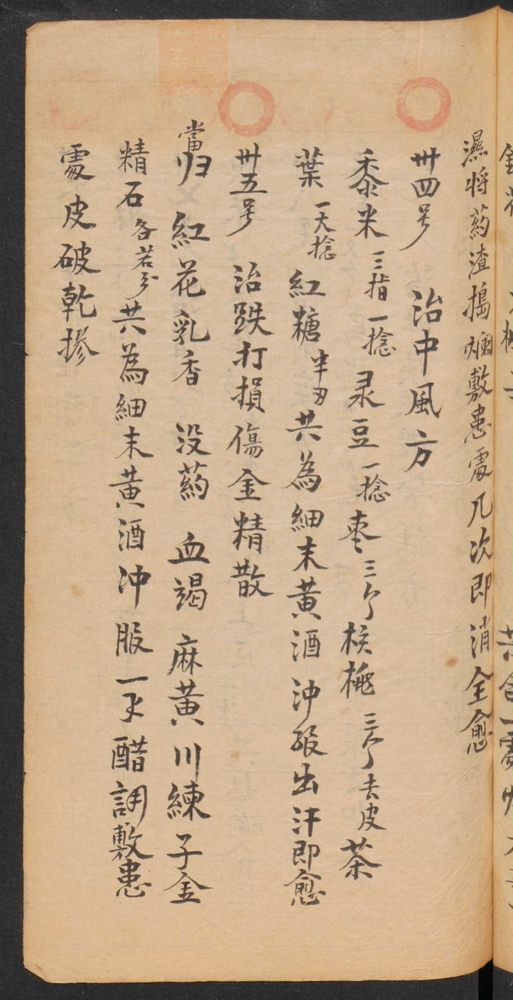 濕將药渣搗爛敷患處几次即消全愈
卅四号 治中風方
黍米三指一捻 彔豆一捻 枣三个 核桃三个去皮 茶
葉一大捻 紅糖半刄 共為細末黄酒沖服出汗即愈
卅五号 治跌打損傷金精散
當归 紅花 乳香 没药 血竭 麻黄 川練子 金
精石各若分 共為細末黄酒冲服一才醋調敷患
處皮破乾摻